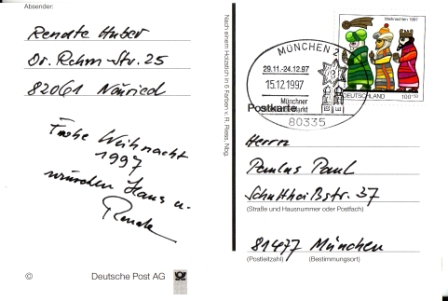 Absender:
Renate Huber
Dr. Rehm-Str. 25
82061 Neuried
Frohe Weihnacht
1997
wünschen Hans u.
Renate
© Deutsche Post AG
Nach einem Holzstich in 5 Farben v. R. Riess, Nbg.
MÜNCHEN 2
29.11.-24.12.97
15.12.1997
Münchner
80335
Weihnachten 1997
DEUTSCHLAND 100+50
Postkarte
Herrn
Paulus Paul
Schultheißstr. 37
(Straße und Hausnummer oder Postfach)
81477 München
(Postleitzahl) (Bestimmungsort)